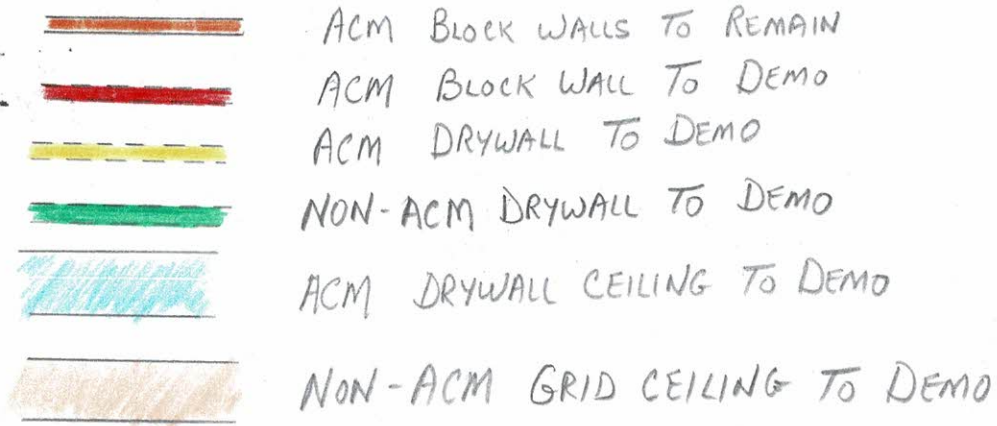 ACM BLOCK WALLS TO REMAIN
ACM BLOCK WALL TO DEMO
ACM DRYWALL TO DEMO
NON-ACM DRYWALL TO DEMO
ACM DRYWALL CEILING TO DEMO
NON-ACM GRID CEILING TO DEMO